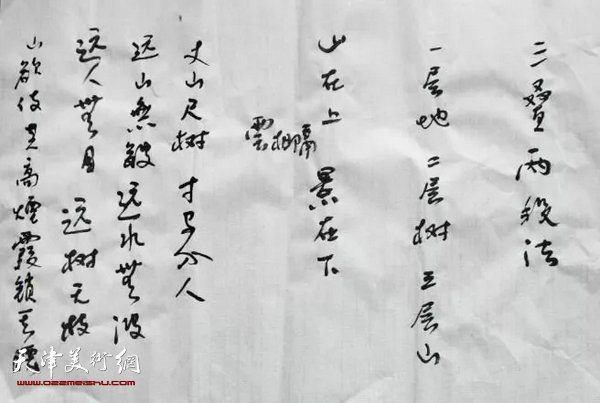 三叠两段法
一层地 二层树 三层山
山在上 景在下
雲相隔
丈山尺树 寸马分人
远山無皴 远水無波
远人無目 远树无枝
山欲使其高 煙霞锁其腰
天津美術網
www.022meishu.com